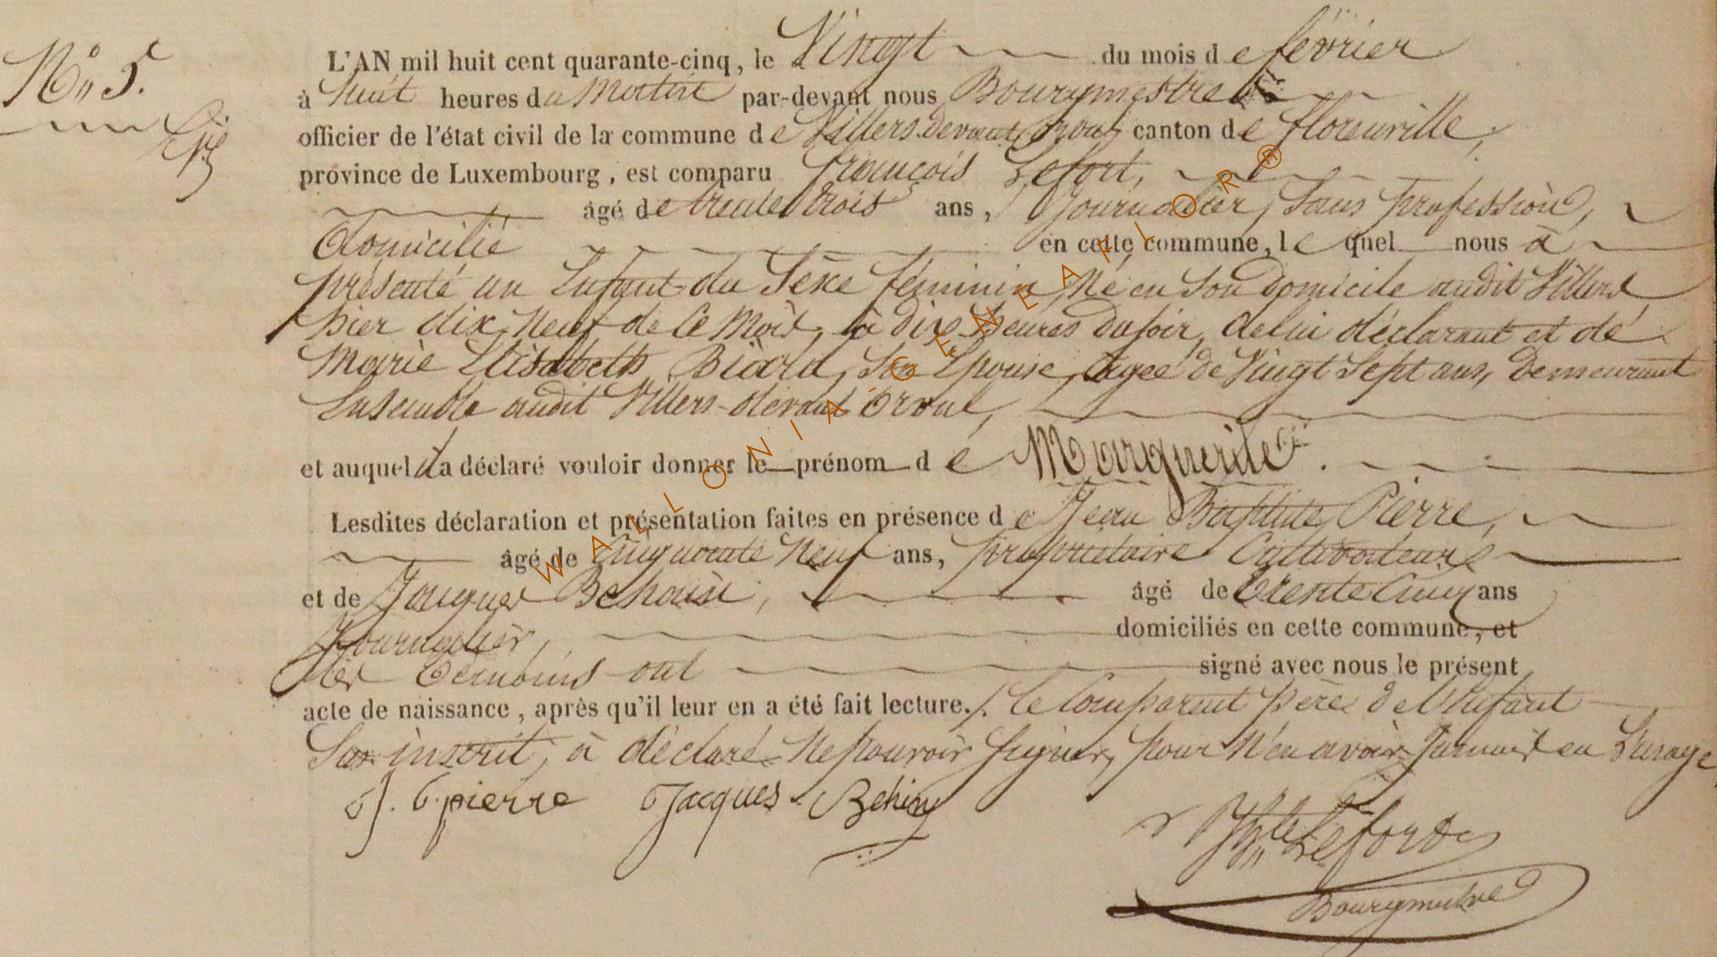 N° 5.
L'AN mil huit cent quarante-cinq, le Vingt du mois de février
à huit heures du Matin par-devant nous Bourgmestre
officier de l'état civil de la commune de Villers devant Orval, canton de florenville,
province de Luxembourg, est comparu françois Lefort,
âgé de trente trois ans, Journalier, Sans profession,
Domicilié en cette commune, lequel nous à
présenté un Enfant du Sexe féminin, Né en Son Domicile audit Villers
hier dix Neuf de Ce Mois, à dix heures du soir, de lui déclarant et de
Marie Elisabeth Biard, Son Epouse, agée de Vingt Sept ans, Demeurant
Ensemble audit Villers-devant Orval,
et auquel il a déclaré vouloir donner le prénom de Marguerite.
Lesdites déclaration et présentation faites en présence de Jean Baptiste Pierre,
âgé de Cinquante Neuf ans, propriétaire Cultivateur
et de Jacques agé de trente Cinq ans
Journalier, domiciliés en cette commune, et
les témoins ont signé avec nous le présent
acte de naissance, après qu'il leur en a été fait lecture. /. Le Comparant père de l'Enfant
inscrit, à déclaré Ne pouvoir Signer, pour N'en avoir Jamais eu l'usage
J. b. pierre Jacques
Lefort
Bourgmestre
WALLONIA-GENEAFLOR®